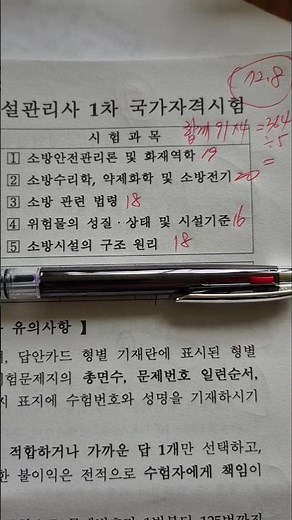 72.8
설관리사 1차 국가자격시험
시 험 과 목
합계 91×4 = 364
÷5
=
1 소방안전관리론 및 화재역학 19
2 소방수리학, 약제화학 및 소방전기 20
3 소방 관련 법령 18
4 위험물의 성질·상태 및 시설기준 16
5 소방시설의 구조 원리 18
유의사항 】
답안카드 형별 기재란에 표시된 형별
험문제지의 총면수, 문제번호 일련순서,
시 표지에 수험번호와 성명을 기재하시기
적합하거나 가까운 답 1개만 선택하고,
한 불이익은 전적으로 수험자에게 책임이